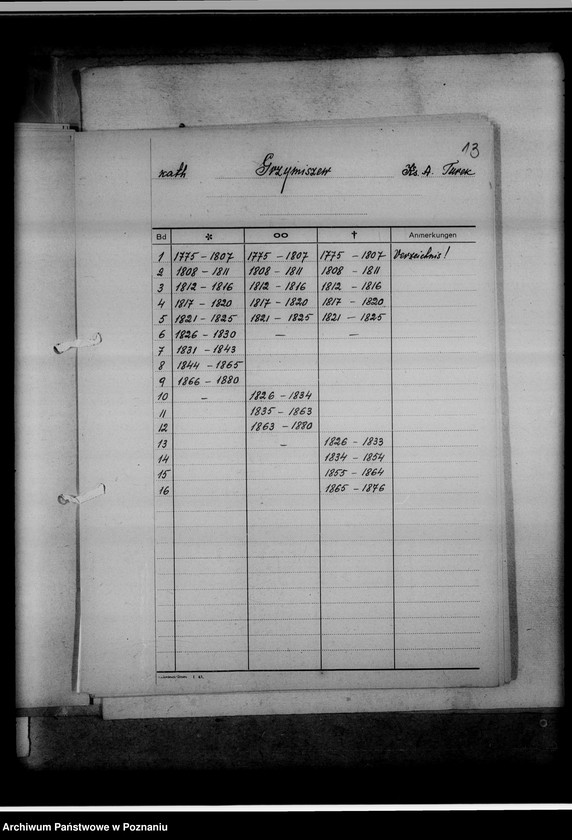 13
kath Grzymiszew Ks. A. Turek
Bd * oo † Anmerkungen
1 1775 – 1807 1775 – 1807 1775 – 1807 Verzeichnis!
2 1808 – 1811 1808 – 1811 1808 – 1811
3 1812 – 1816 1812 – 1816 1812 – 1816
4 1817 – 1820 1817 – 1820 1817 – 1820
5 1821 – 1825 1821 – 1825 1821 – 1825
6 1826 – 1830 – –
7 1831 – 1843
8 1844 – 1865
9 1866 – 1880
10 – 1826 – 1834
11 1835 – 1863
12 1863 – 1880
13 – 1826 – 1833
14 1834 – 1854
15 1855 – 1864
16 1865 – 1876
Archiwum Państwowe w Poznaniu